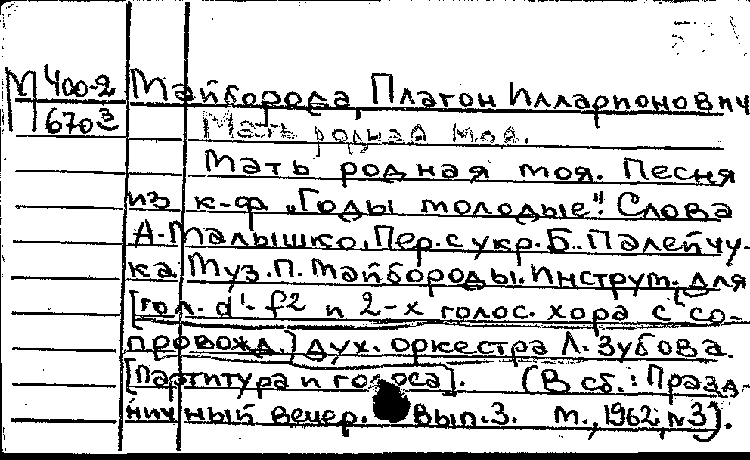 М 400-2
670 3
Майборода, Платон Илларионович
Мать родная моя.
Мать родная моя. Песня
из к-ф "Годы молодые". Слова
А. Малышко. Пер. с укр. Б. Палейчу-
ка. Муз. П. Майбороды. Инструм. для
[гол. d¹-f² и 2-х голос. хора с со-
провожд.] дух. оркестра Л. Зубова.
[Партитура и голоса]. (В сб.: Празд-
ничный вечер. Вып. 3. М., 1962, №3).